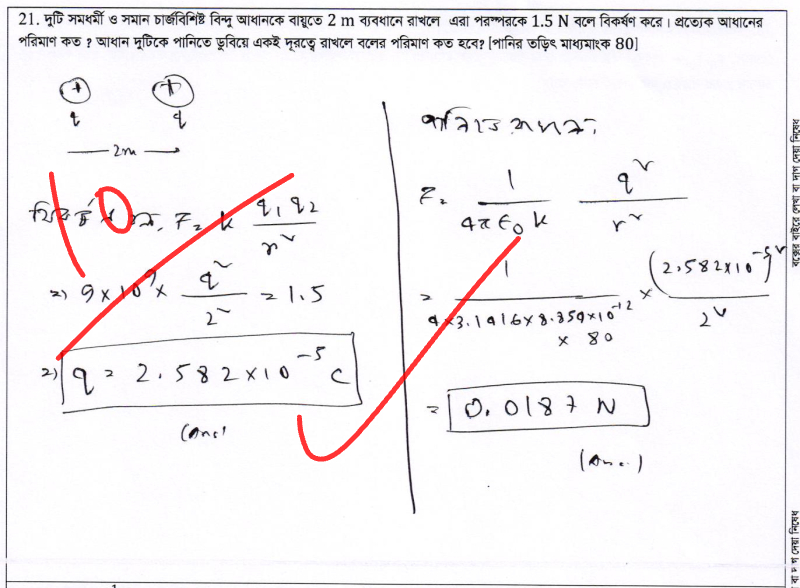 21. দুটি সমধর্মী ও সমান চার্জবিশিষ্ট বিন্দু আধানকে বায়ুতে 2 m ব্যবধানে রাখলে এরা পরস্পরকে 1.5 N বলে বিকর্ষণ করে। প্রত্যেক আধানের
পরিমাণ কত ? আধান দুটিকে পানিতে ডুবিয়ে একই দূরত্বে রাখলে বলের পরিমাণ কত হবে? [পানির তড়িৎ মাধ্যমাংক 80]
+ +
q q
2m
10
বিকর্ষণ বল, F = k q₁ q₂ / r²
⇒ 9 × 10⁹ × q² / 2² = 1.5
⇒ q = 2.582 × 10⁻⁵ C
(Ans)
পানিতে
F = 1 / 4π ε₀ k q² / r²
= 1 / 4 × 3.1416 × 8.854 × 10⁻¹² × 80 × (2.582 × 10⁻⁵)² / 2²
= 0.0187 N
(Ans.)
বক্সের বাইরে লেখা বা দাগ দেয়া নিষেধ
দেয়া নিষেধ